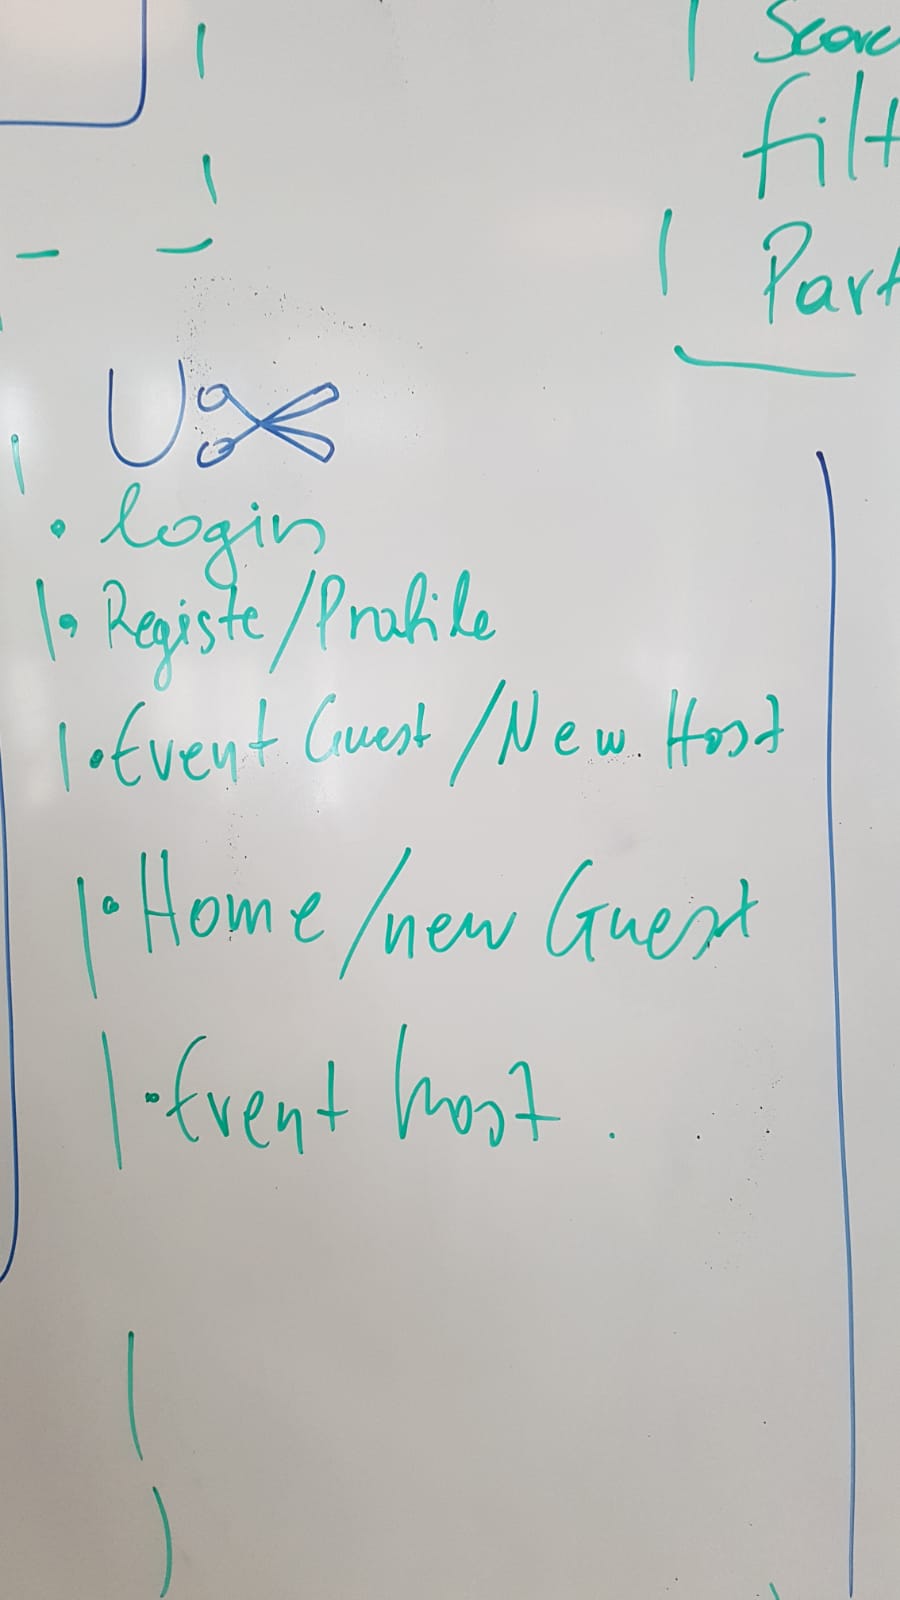 Searc
filt
Part
Ux
• login
• Registe/Profile
• Event Guest/New Host
• Home/new Guest
• Event host.